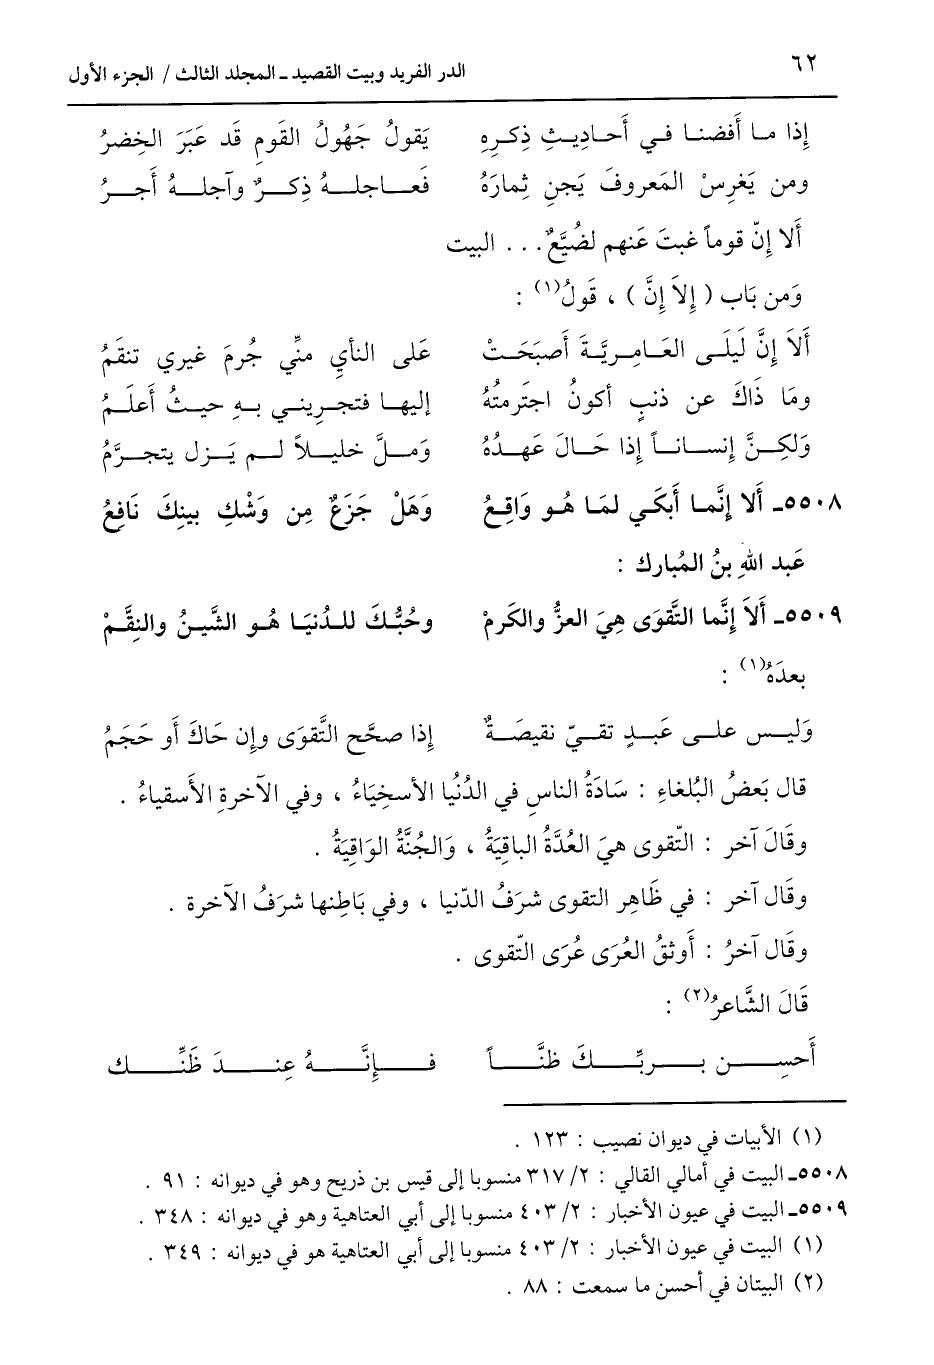 ٦٢
الدر الفريد وبيت القصيد ـ المجلد الثالث / الجزء الأول
إِذا ما أَفضنا في أَحادِيثِ ذِكرِهِ يَقولُ جَهُولُ القَومِ قَد عَبَرَ الخِضرُ
ومن يَغرِسْ المَعروفَ يَجنِ ثِمارَهُ فَعاجلهُ ذِكرٌ وآجلهُ أَجرُ
أَلا إِنّ قوماً غبتَ عَنهم لضُيَّعٌ . . . البيت
وَمن بَاب ( إِلاَ إِنَّ ) ، قَولُ(١) :
أَلاَ إِنَّ لَيلَى العَامريَّةَ أَصبَحَتْ عَلى النأيِ منِّي جُرمَ غيري تنقَمُ
ومَا ذَاكَ عن ذنبٍ أكونُ اجتَرمتُهُ إليها فتجريني بهِ حيثُ أَعلَمُ
وَلكِنَّ إِنساناً إذا حَالَ عَهدُهُ وَملَّ خليلاً لم يَزل يتجرَّمُ
٥٥٠٨ـ أَلا إِنَّما أَبكَي لمَا هُو وَاقِعُ وَهَلْ جَزَعٌ مِن وَشْكِ بينِكَ نَافِعُ
عَبد اللهِ بنُ المُبارك :
٥٥٠٩ـ أَلاَ إِنَّما التَّقوَى هِيَ العزُّ والكَرمْ وحُبُّكَ للدُنيَا هُو الشَّينُ والنِقَّمْ
بعدَهُ(١) :
وَليس على عَبدٍ تقيّ نقيصَةٌ إذا صحَّح التَّقوَى وإن حَاكَ أَو حَجَمُ
قال بَعضُ البُلغاءِ : سَادَةُ الناسِ في الدُنُيا الأسخِيَاءُ ، وفي الآخرةِ الأَسقياءُ .
وقَالَ آخر : التّقوى هيَ العُدَّةُ الباقِيَةُ ، وَالجُنَّةُ الوَاقِيَةُ .
وقَال آخر : في ظَاهِر التقوى شرَفُ الدّنيا ، وفي بَاطِنها شرَفُ الآخرة .
وقَال آخرُ : أَوثقُ العُرَى عُرَى التّقوى .
قَالَ الشَّاعرُ(٢) :
أَحسِن بربِّكَ ظنَّاً فإِنَّهُ عِندَ ظَنِّك
(١) الأبيات في ديوان نصيب : ١٢٣ .
٥٥٠٨ـ البيت في أمالي القالي : ٢/ ٣١٧ منسوبا إلى قيس بن ذريح وهو في ديوانه : ٩١ .
٥٥٠٩ـ البيت في عيون الأخبار : ٢/ ٤٠٣ منسوبا إلى أبي العتاهية وهو في ديوانه : ٣٤٨ .
(١) البيت في عيون الأخبار : ٢/ ٤٠٣ منسوبا إلى أبي العتاهية هو في ديوانه : ٣٤٩ .
(٢) البيتان في أحسن ما سمعت : ٨٨ .